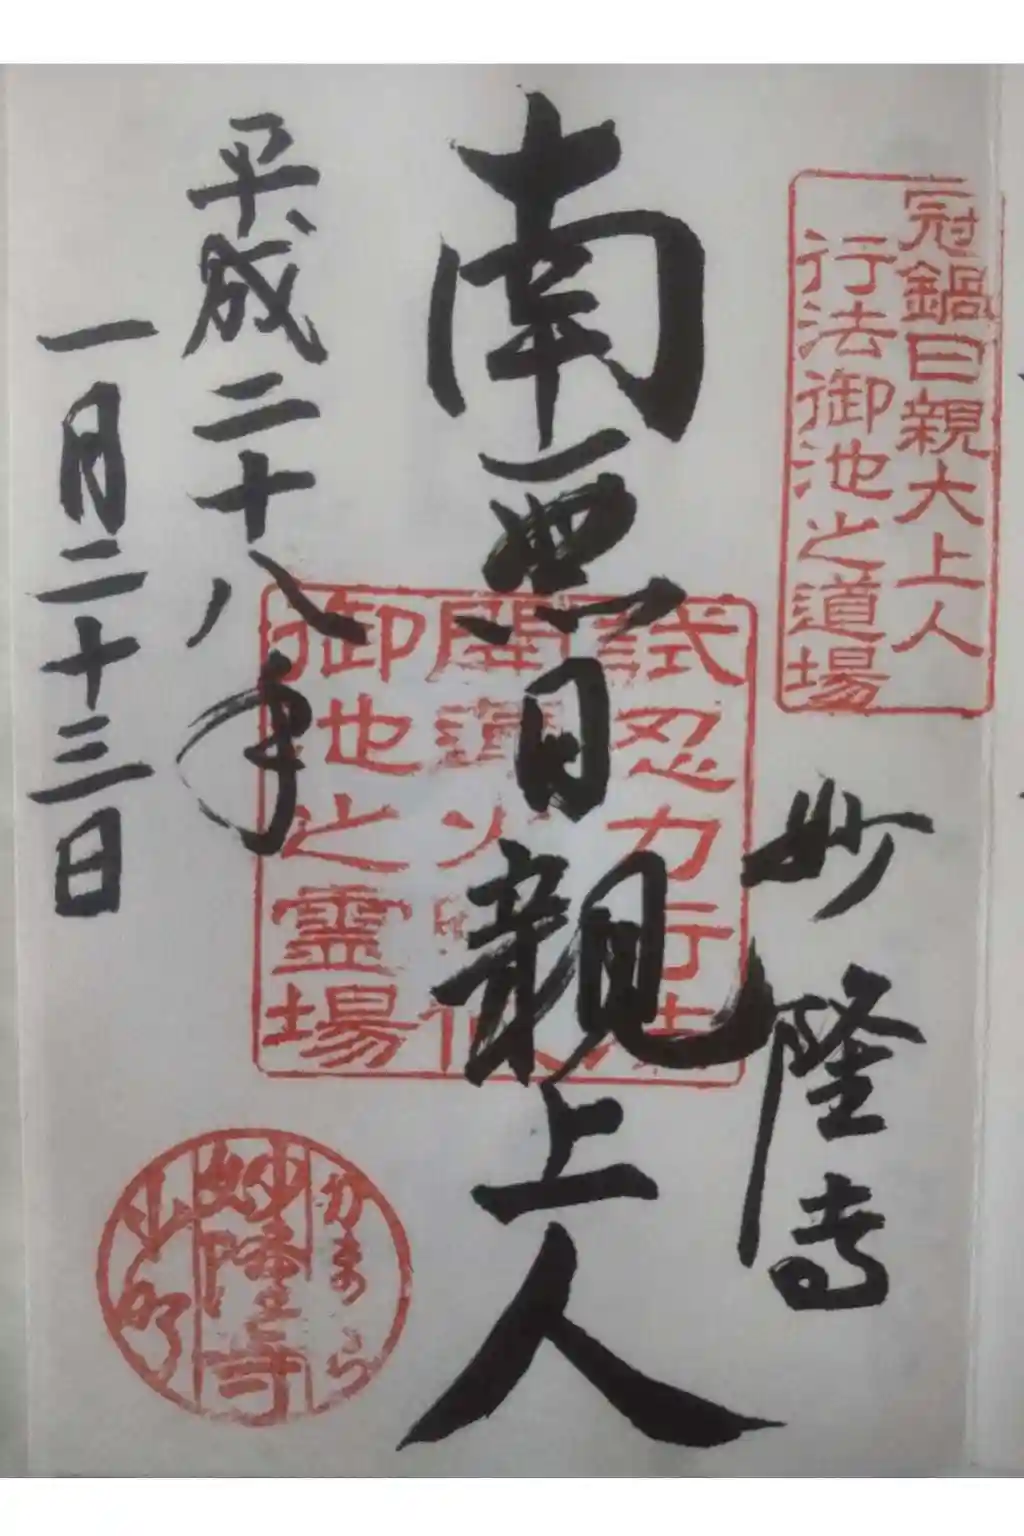 冠鍋日親大上人
行法御池之道場
妙隆寺
南無日親上人
試忍力行法
御池之霊場
平成二十八年
一月二十三日
かまくら
妙隆寺
小町